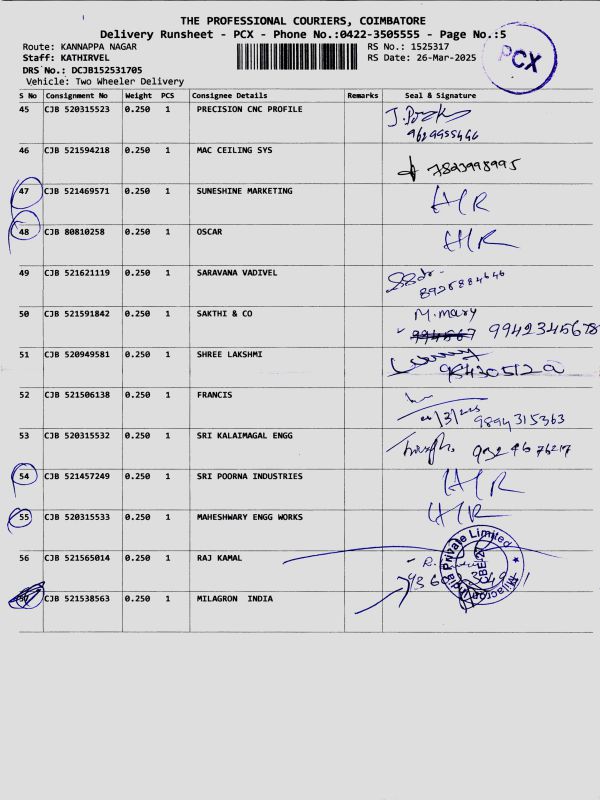 THE PROFESSIONAL COURIERS, COIMBATORE
Delivery Runsheet - PCX - Phone No.:0422-3505555 - Page No.:5
Route: KANNAPPA NAGAR
RS No.: 1525317
PCX
Staff: KATHIRVEL
RS Date: 26-Mar-2025
DRS No.: DCJB152531705
Vehicle: Two Wheeler Delivery
S No Consignment No Weight PCS Consignee Details Remarks Seal & Signature
45 CJB 520315523 0.250 1 PRECISION CNC PROFILE
46 CJB 521594218 0.250 1 MAC CEILING SYS
47 CJB 521469571 0.250 1 SUNESHINE MARKETING
48 CJB 80810258 0.250 1 OSCAR
49 CJB 521621119 0.250 1 SARAVANA VADIVEL
8925884646
50 CJB 521591842 0.250 1 SAKTHI & CO M. mary
9942345678
51 CJB 520949581 0.250 1 SHREE LAKSHMI
52 CJB 521506138 0.250 1 FRANCIS
9894315363
53 CJB 520315532 0.250 1 SRI KALAIMAGAL ENGG
54 CJB 521457249 0.250 1 SRI POORNA INDUSTRIES
55 CJB 520315533 0.250 1 MAHESHWARY ENGG WORKS
56 CJB 521565014 0.250 1 RAJ KAMAL
57 CJB 521538563 0.250 1 MILAGRON INDIA
Private Limited